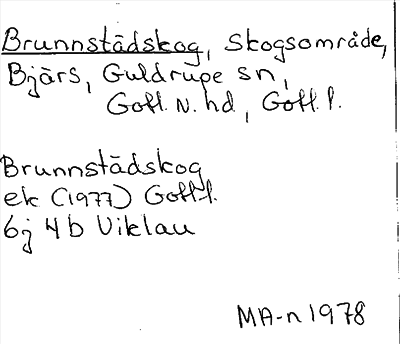 Brunnstädskog, Skogsområde,
Bjärs, Guldrupe sn,
Gotl. N. hd, Gotl. l.
Brunnstädskog
ek (1977) Gotl. l.
6j 4b Viklau
MA-n 1978